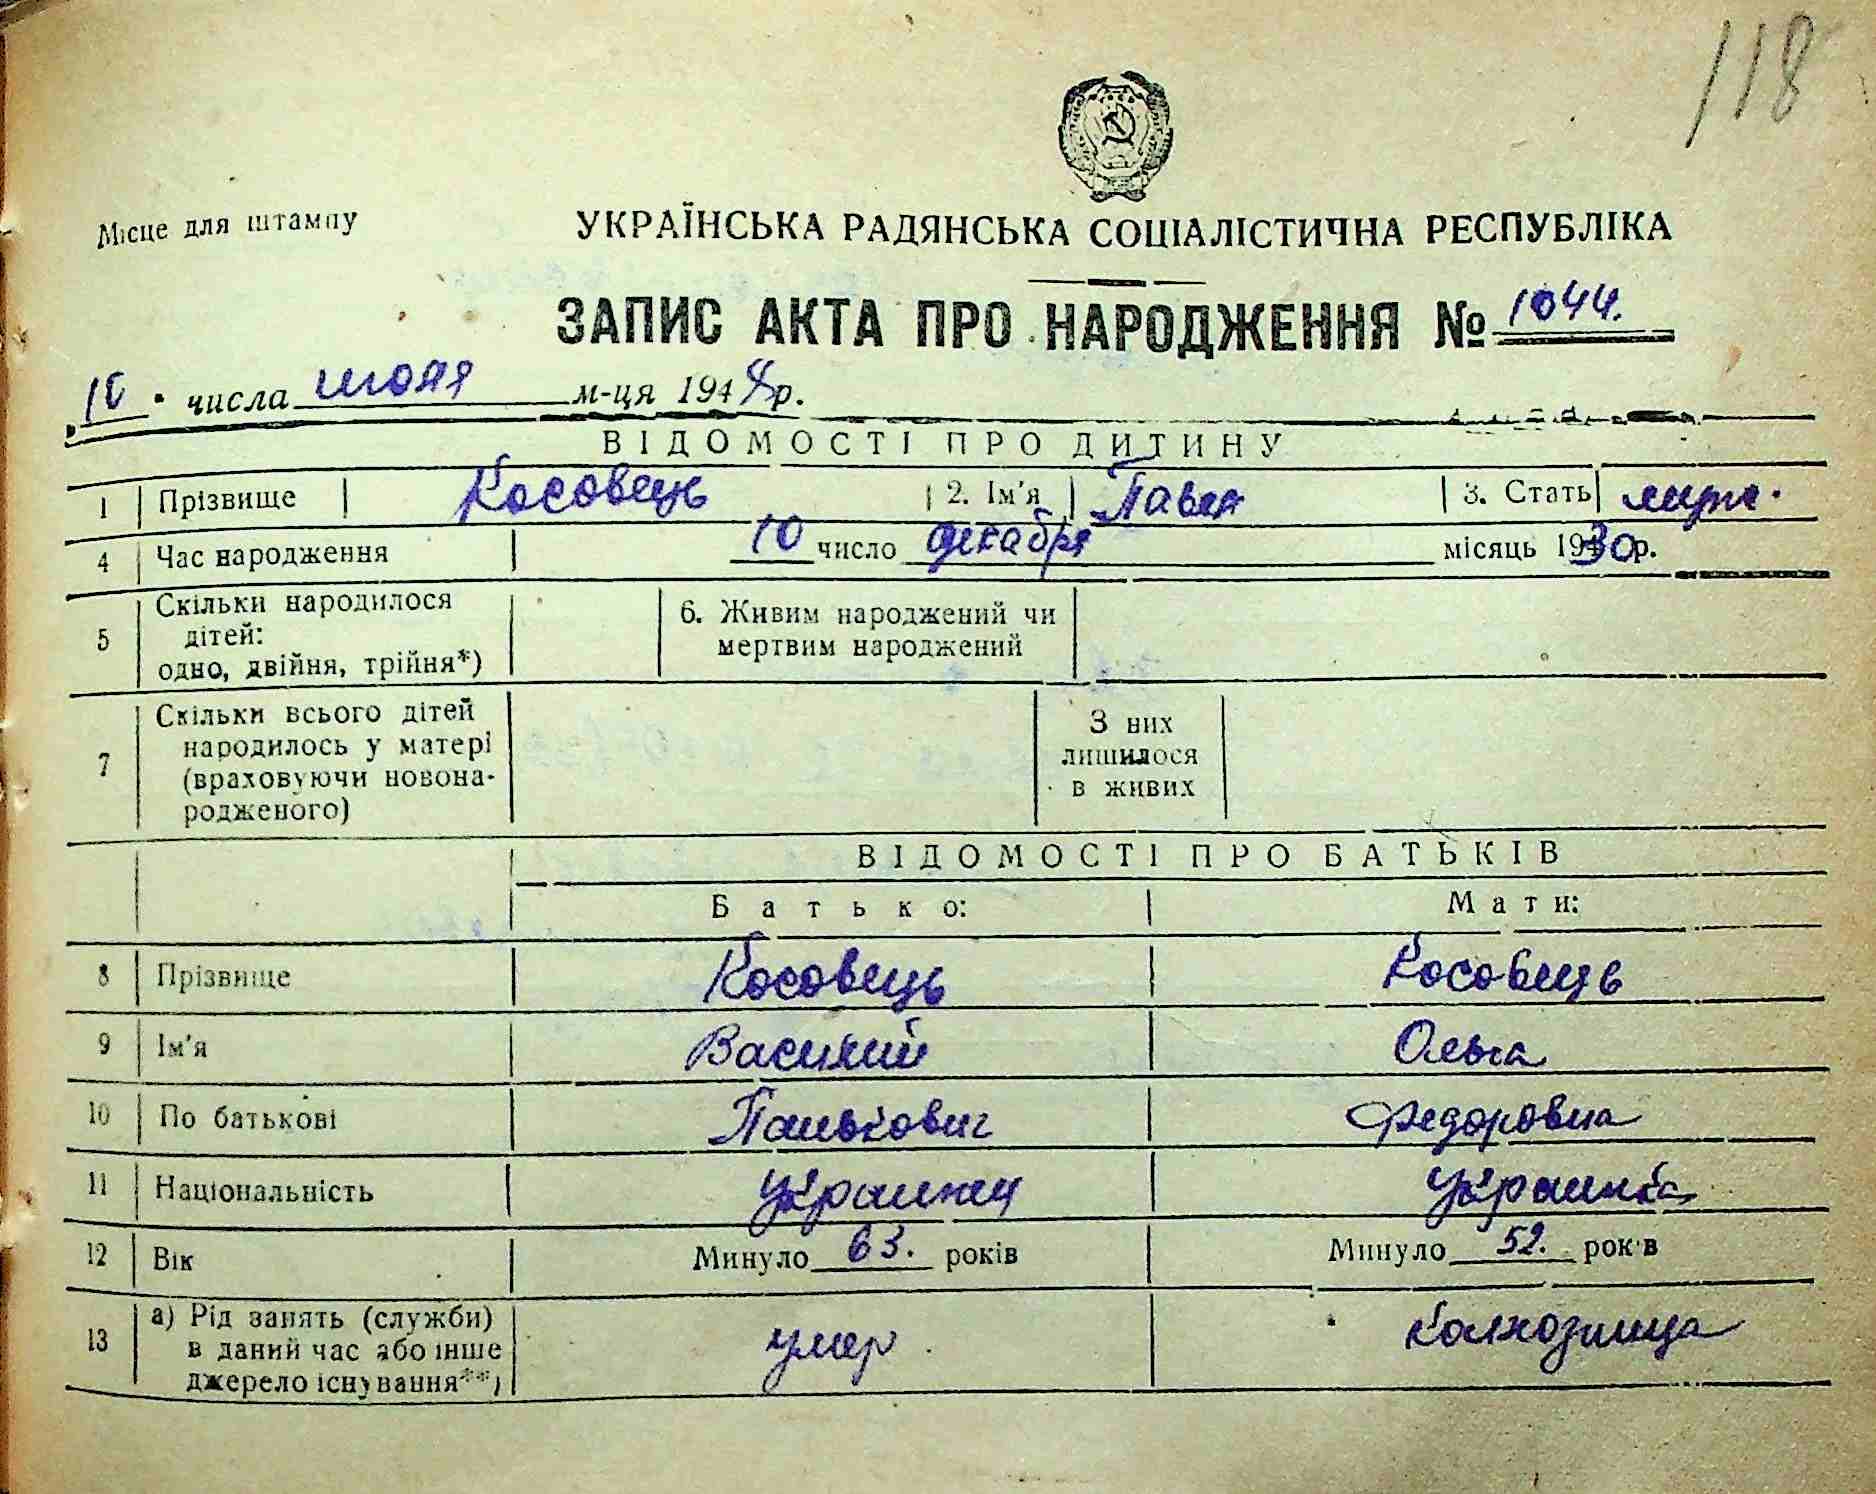 118
Місце для штампу
УКРАЇНСЬКА РАДЯНСЬКА СОЦІАЛІСТИЧНА РЕСПУБЛІКА
ЗАПИС АКТА ПРО НАРОДЖЕННЯ № 1044.
10 числа июля м-ця 1944 р.
ВІДОМОСТІ ПРО ДИТИНУ
1 Прізвище Косовець 2. Ім'я Павел 3. Стать муж.
4 Час народження 10 число декабря місяць 1930 р.
5 Скільки народилося дітей: одно, двійня, трійня*)
6. Живим народжений чи мертвим народжений
7 Скільки всього дітей народилось у матері (враховуючи новонародженого)
З них лишилося в живих
ВІДОМОСТІ ПРО БАТЬКІВ
Батько: Мати:
8 Прізвище Косовець Косовець
9 Ім'я Василий Ольга
10 По батькові Панькович Федоровна
11 Національність Украинец Украинка
12 Вік Минуло 63. років Минуло 52. років
13 а) Рід занять (служби) в даний час або інше джерело існування**) умер Колхозница